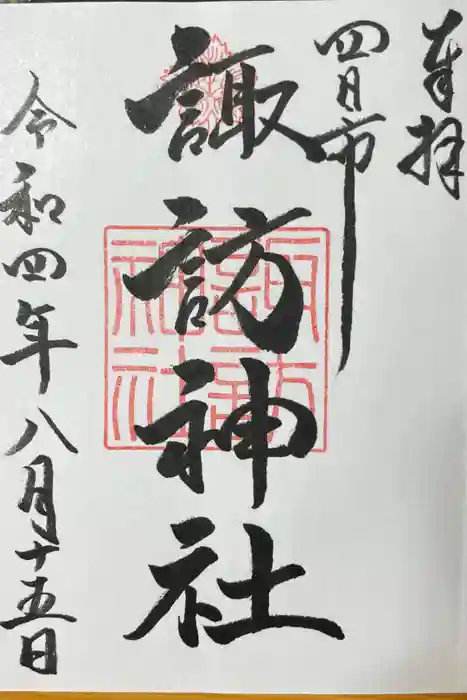 奉拝
四日市
諏訪神社
令和四年八月十五日